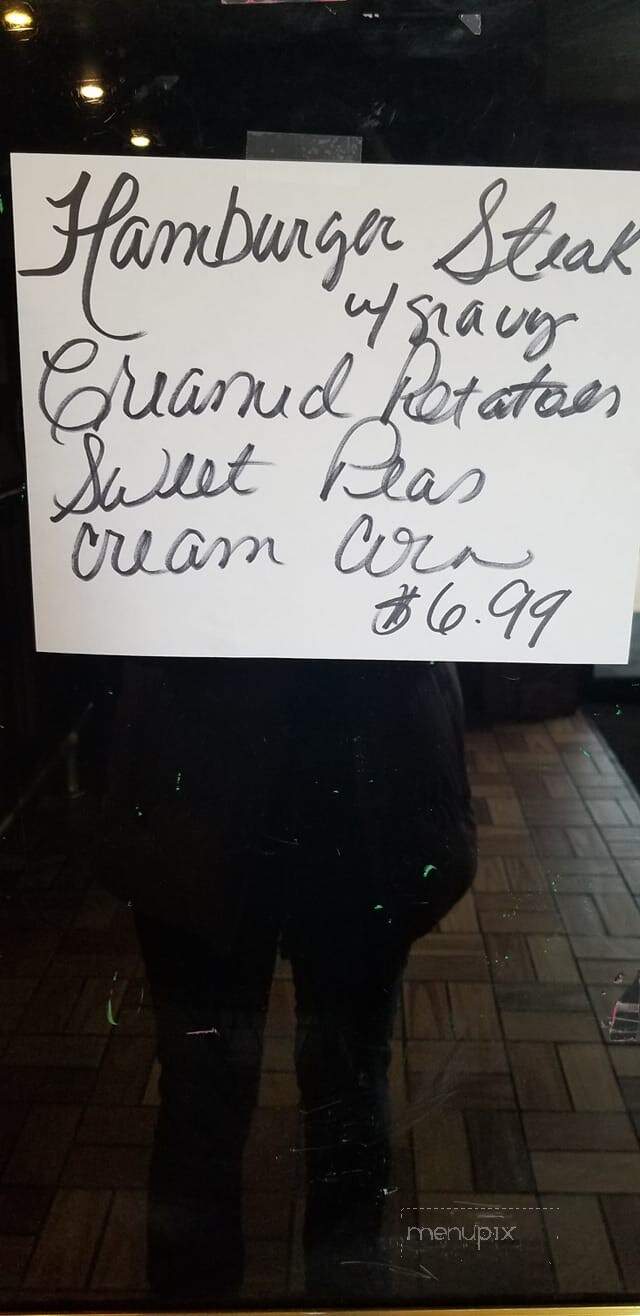 Hamburger Steak
w/ gravy
Creamed Potatoes
Sweet Peas
cream Corn
$6.99
menupix